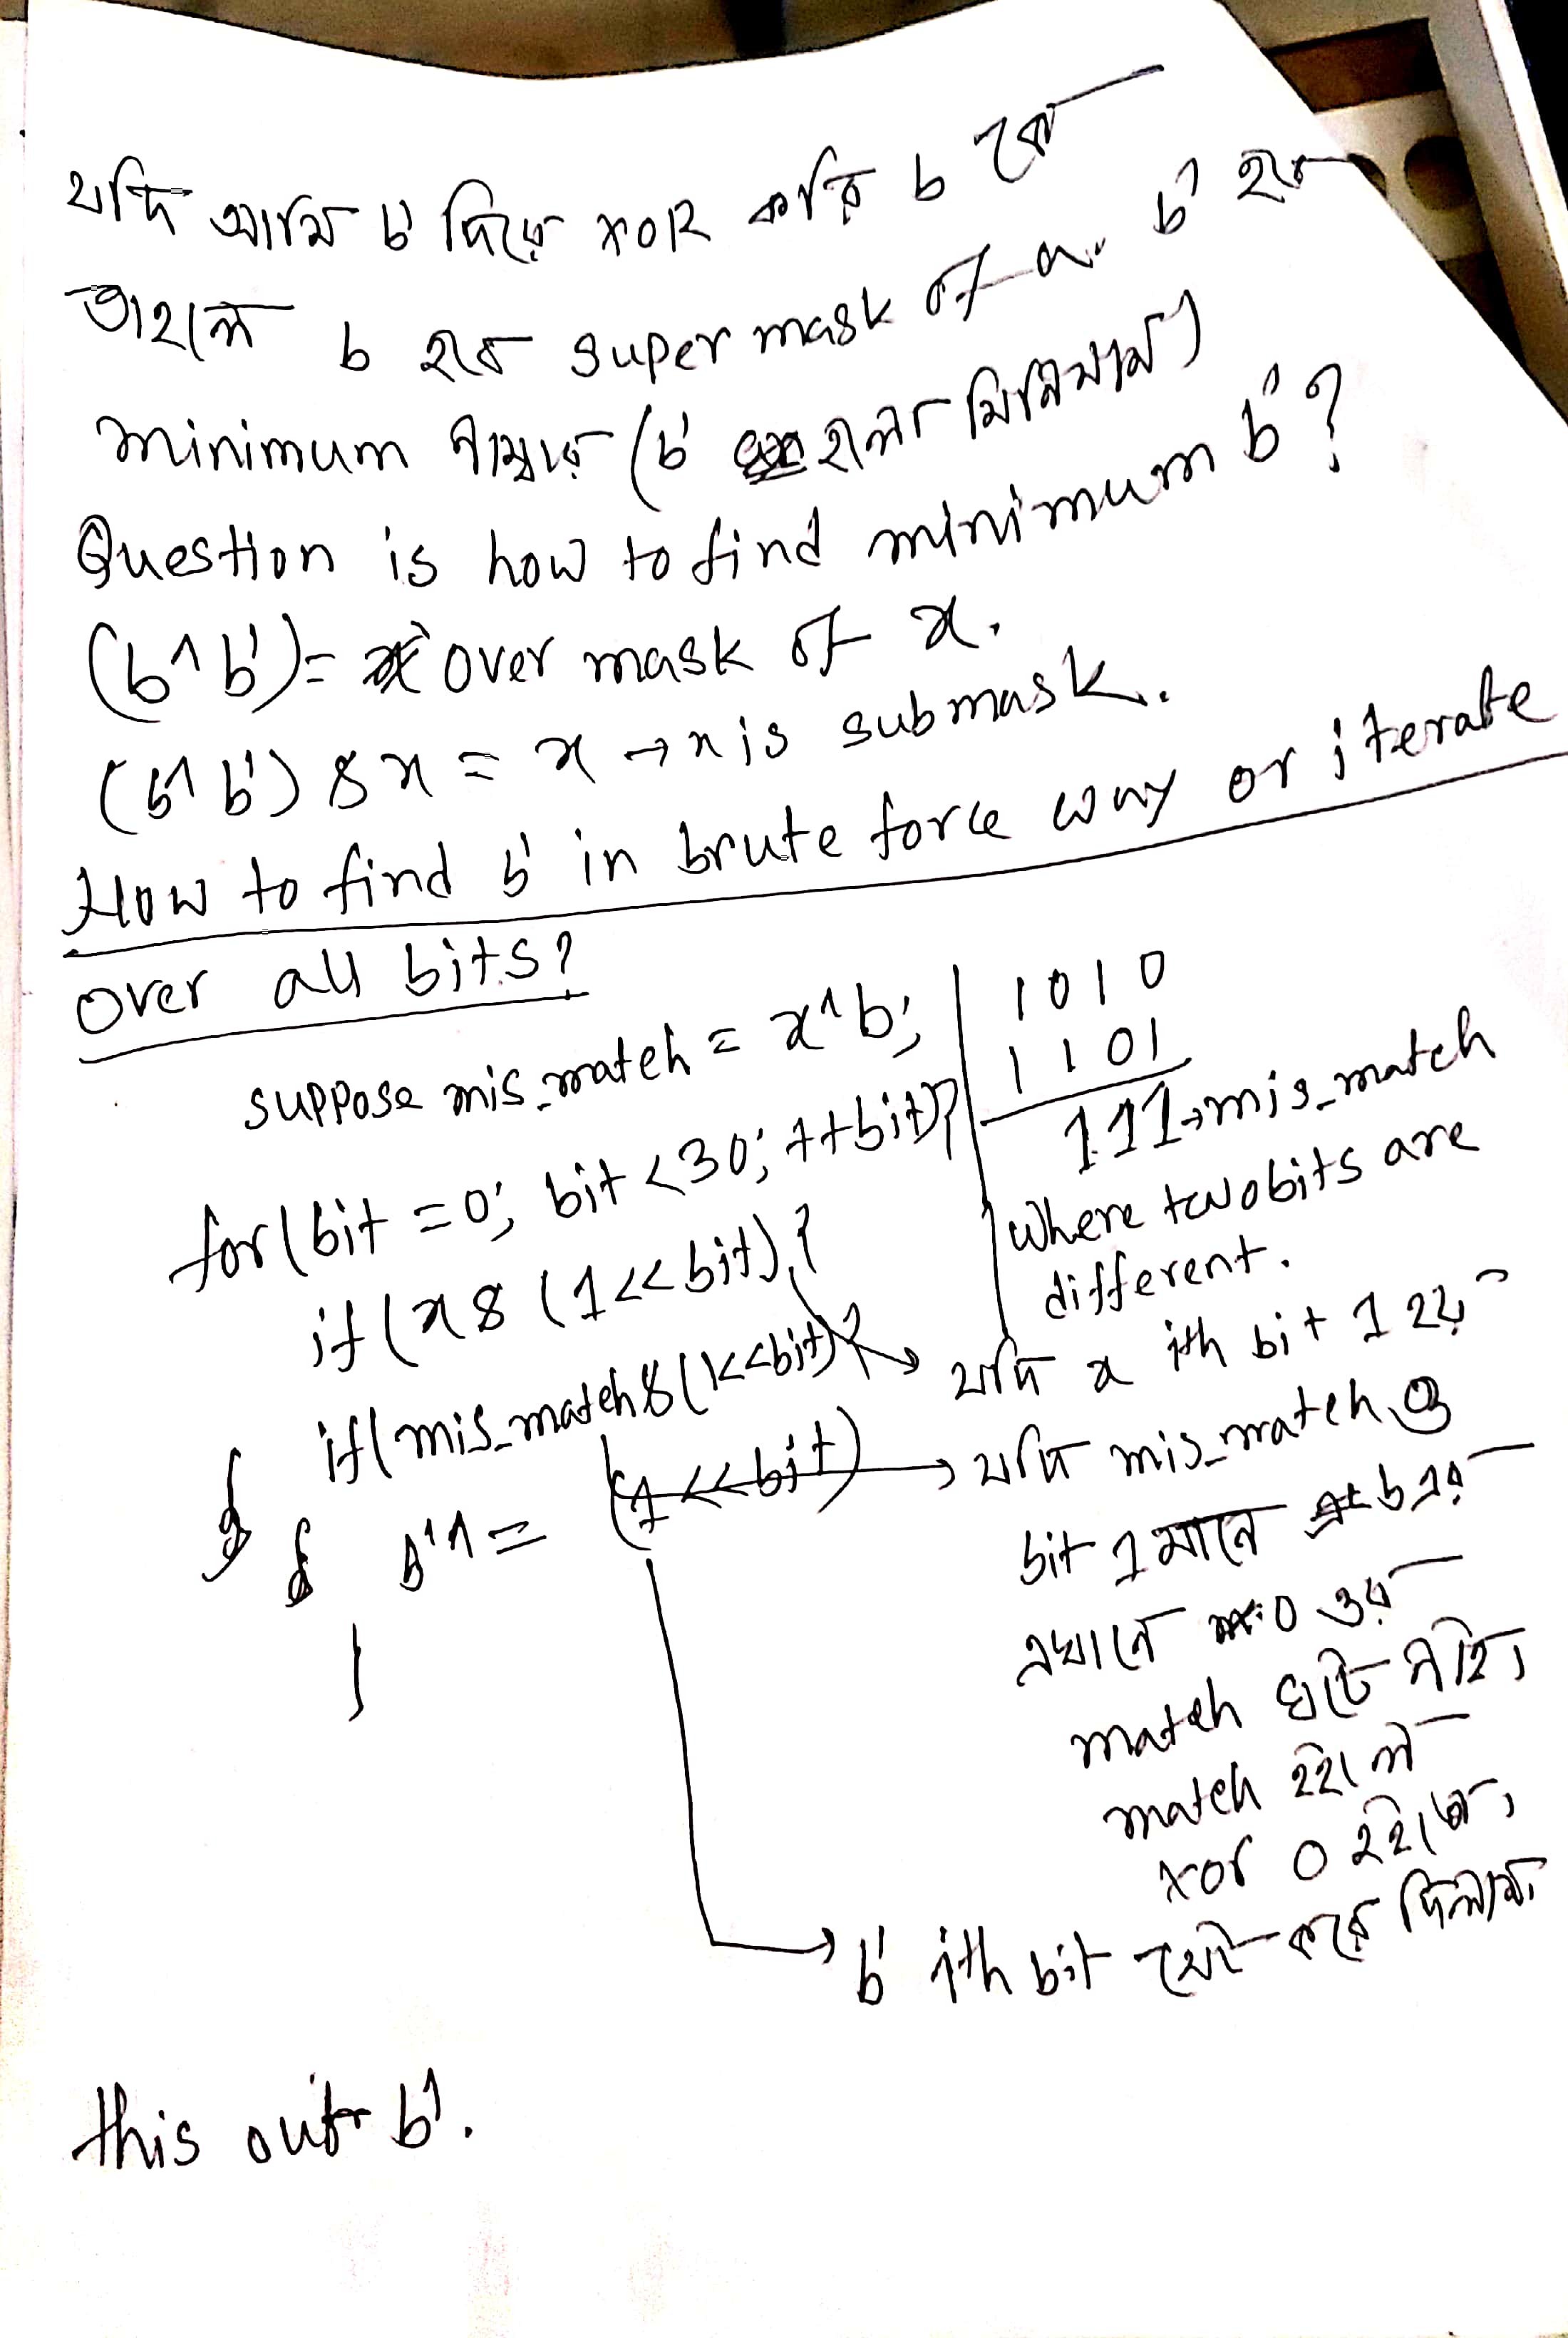 যদি আমি b' দিয়ে XOR করি b কে
তাহলে b হবে super mask of a. b' হবে
minimum নাম্বার (b' হলো মিনিমাম)
Question is how to find minimum b'?
(b^b')= over mask of x.
(b^b') & x = x → x is submask.
How to find b' in brute force way or iterate
over all bits?
suppose mis_match = x^b;
for(bit = 0; bit <30; ++bit){
if(x & (1<<bit){
if(mis_match & (1<<bit){
b'^= (1<<bit)
1010
1101
111→mis_match
where two bits are
different.
যদি x ith bit 1 হয়
যদি mis_match ও
bit 1 মানে b এর
এখানে 0 ওর
match ঘটে নাই।
match হইলে
xor 0 হইতো,
b' ith bit সেট করে দিলাম।
this our b'.